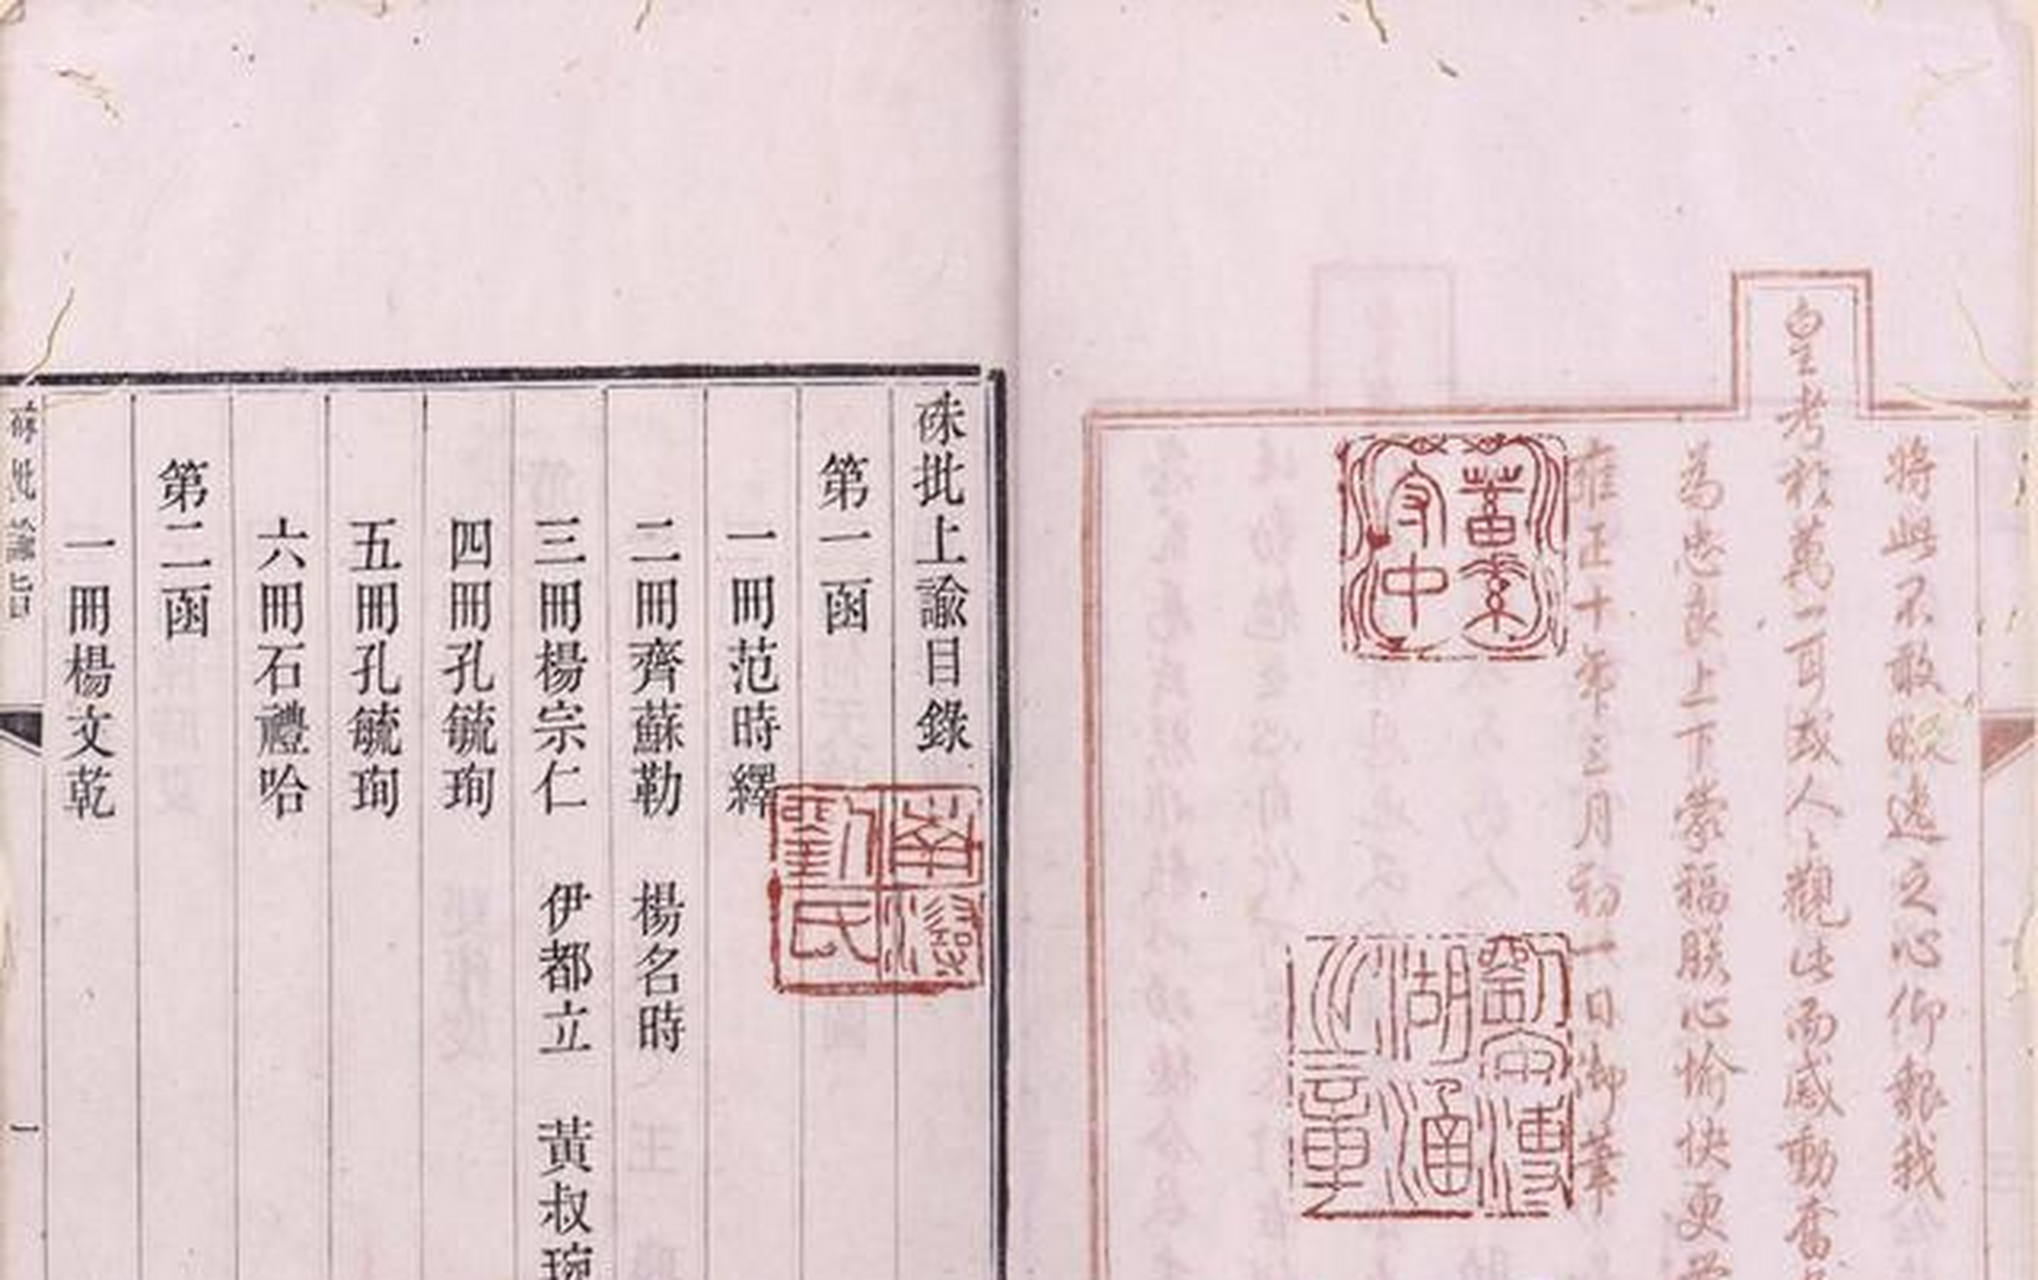 將此不敢暇逸之心仰報我
皇考於萬一耳或人人觀此而感動奮
為忠良上下蒙福朕心愉快更
雍正十年三月初一日御筆
硃批上諭目錄
第一函
一冊范時繹
二冊齊蘇勒 楊名時
三冊楊宗仁 伊都立 黃叔琬
四冊孔毓珣
五冊孔毓珣
六冊石禮哈
第二函
一冊楊文乾
硃批諭旨
一
劉氏
守中